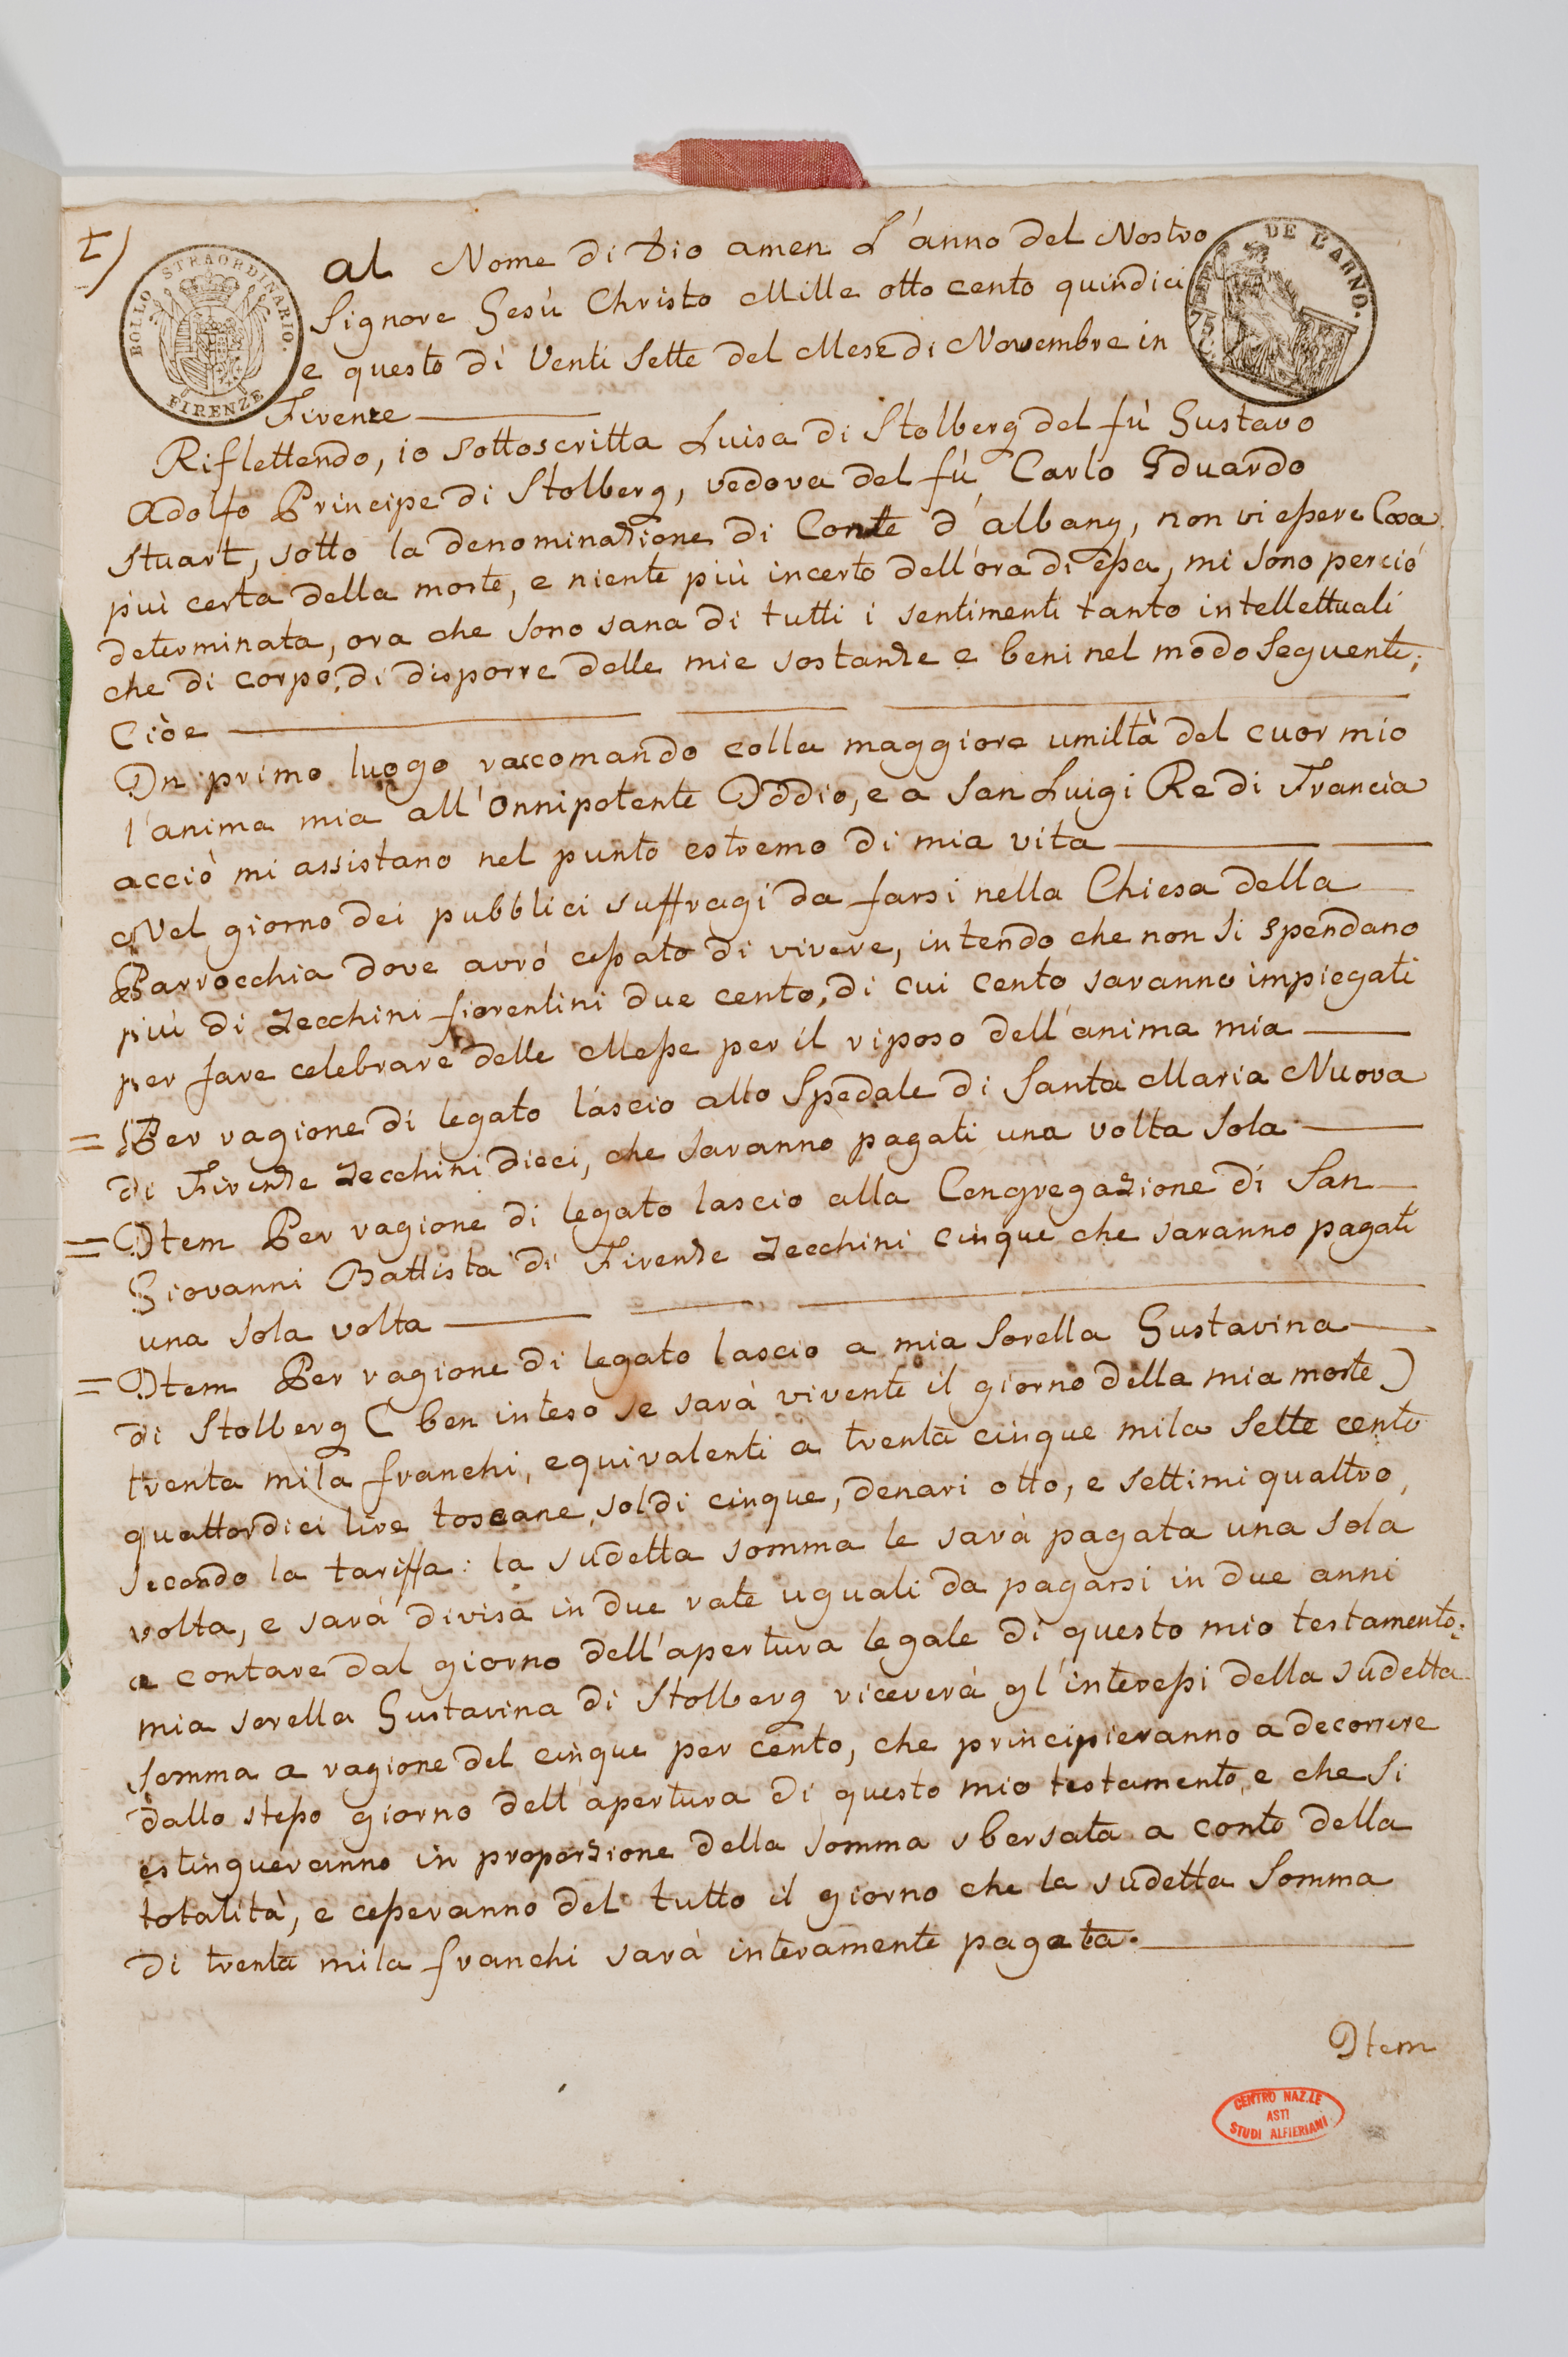 1)
BOLLO STRAORDINARIO.
FIRENZE
DE L'ARNO.
al Nome di Dio amen L'anno del Nostro
Signore Gesù Christo Mille otto cento quindici
e questo dì Venti Sette del Mese di Novembre in
Firenze
Riflettendo, io sottoscritta Luisa di Stolberg del fù Gustavo
Adolfo Principe di Stolberg, vedova del fù Carlo Eduardo
Stuart, sotto la denominazione di Conte d'albany, non vi essere Cosa
più certa della morte, e niente più incerto dell'ora di essa, mi sono perciò
determinata, ora che sono sana di tutti i sentimenti tanto intellettuali
che di corpo, di disporre delle mie sostanze e beni nel modo Seguente;
Cioè
In primo luogo raccomando colla maggiore umiltà del cuor mio
l'anima mia all'Onnipotente Iddio, e a San Luigi Re di Francia
acciò mi assistano nel punto estremo di mia vita
Nel giorno dei pubblici suffragi da farsi nella Chiesa della
Parrocchia dove avrò cessato di vivere, intendo che non si spendano
più di Zecchini fiorentini due cento, di cui cento saranno impiegati
per fare celebrare delle Messe per il riposo dell'anima mia
= Per ragione di legato lascio allo Spedale di Santa Maria Nuova
di Firenze Zecchini dieci, che saranno pagati una volta Sola
= Item Per ragione di legato lascio alla Congregazione di San
Giovanni Battista di Firenze Zecchini cinque che saranno pagati
una sola volta
= Item Per ragione di legato lascio a mia Sorella Gustavina
di Stolberg (ben inteso se sarà vivente il giorno della mia morte)
trenta mila franchi, equivalenti a trenta cinque mila Sette cento
quattordici lire toscane, soldi cinque, denari otto, e settimi quattro,
secondo la tariffa: la sudetta somma le sarà pagata una sola
volta, e sarà divisa in due rate uguali da pagarsi in due anni
a contare dal giorno dell'apertura legale di questo mio testamento;
mia sorella Gustavina di Stolberg riceverà gl'interessi della sudetta
Somma a ragione del cinque per cento, che principieranno a decorrere
dallo stesso giorno dell'apertura di questo mio testamento, e che si
estingueranno in proporzione della somma sbersata a conto della
totalità, e cesseranno del tutto il giorno che la sudetta Somma
di trenta mila franchi sarà interamente pagata.
Item
CENTRO NAZ.LE
ASTI
STUDI ALFIERIANI